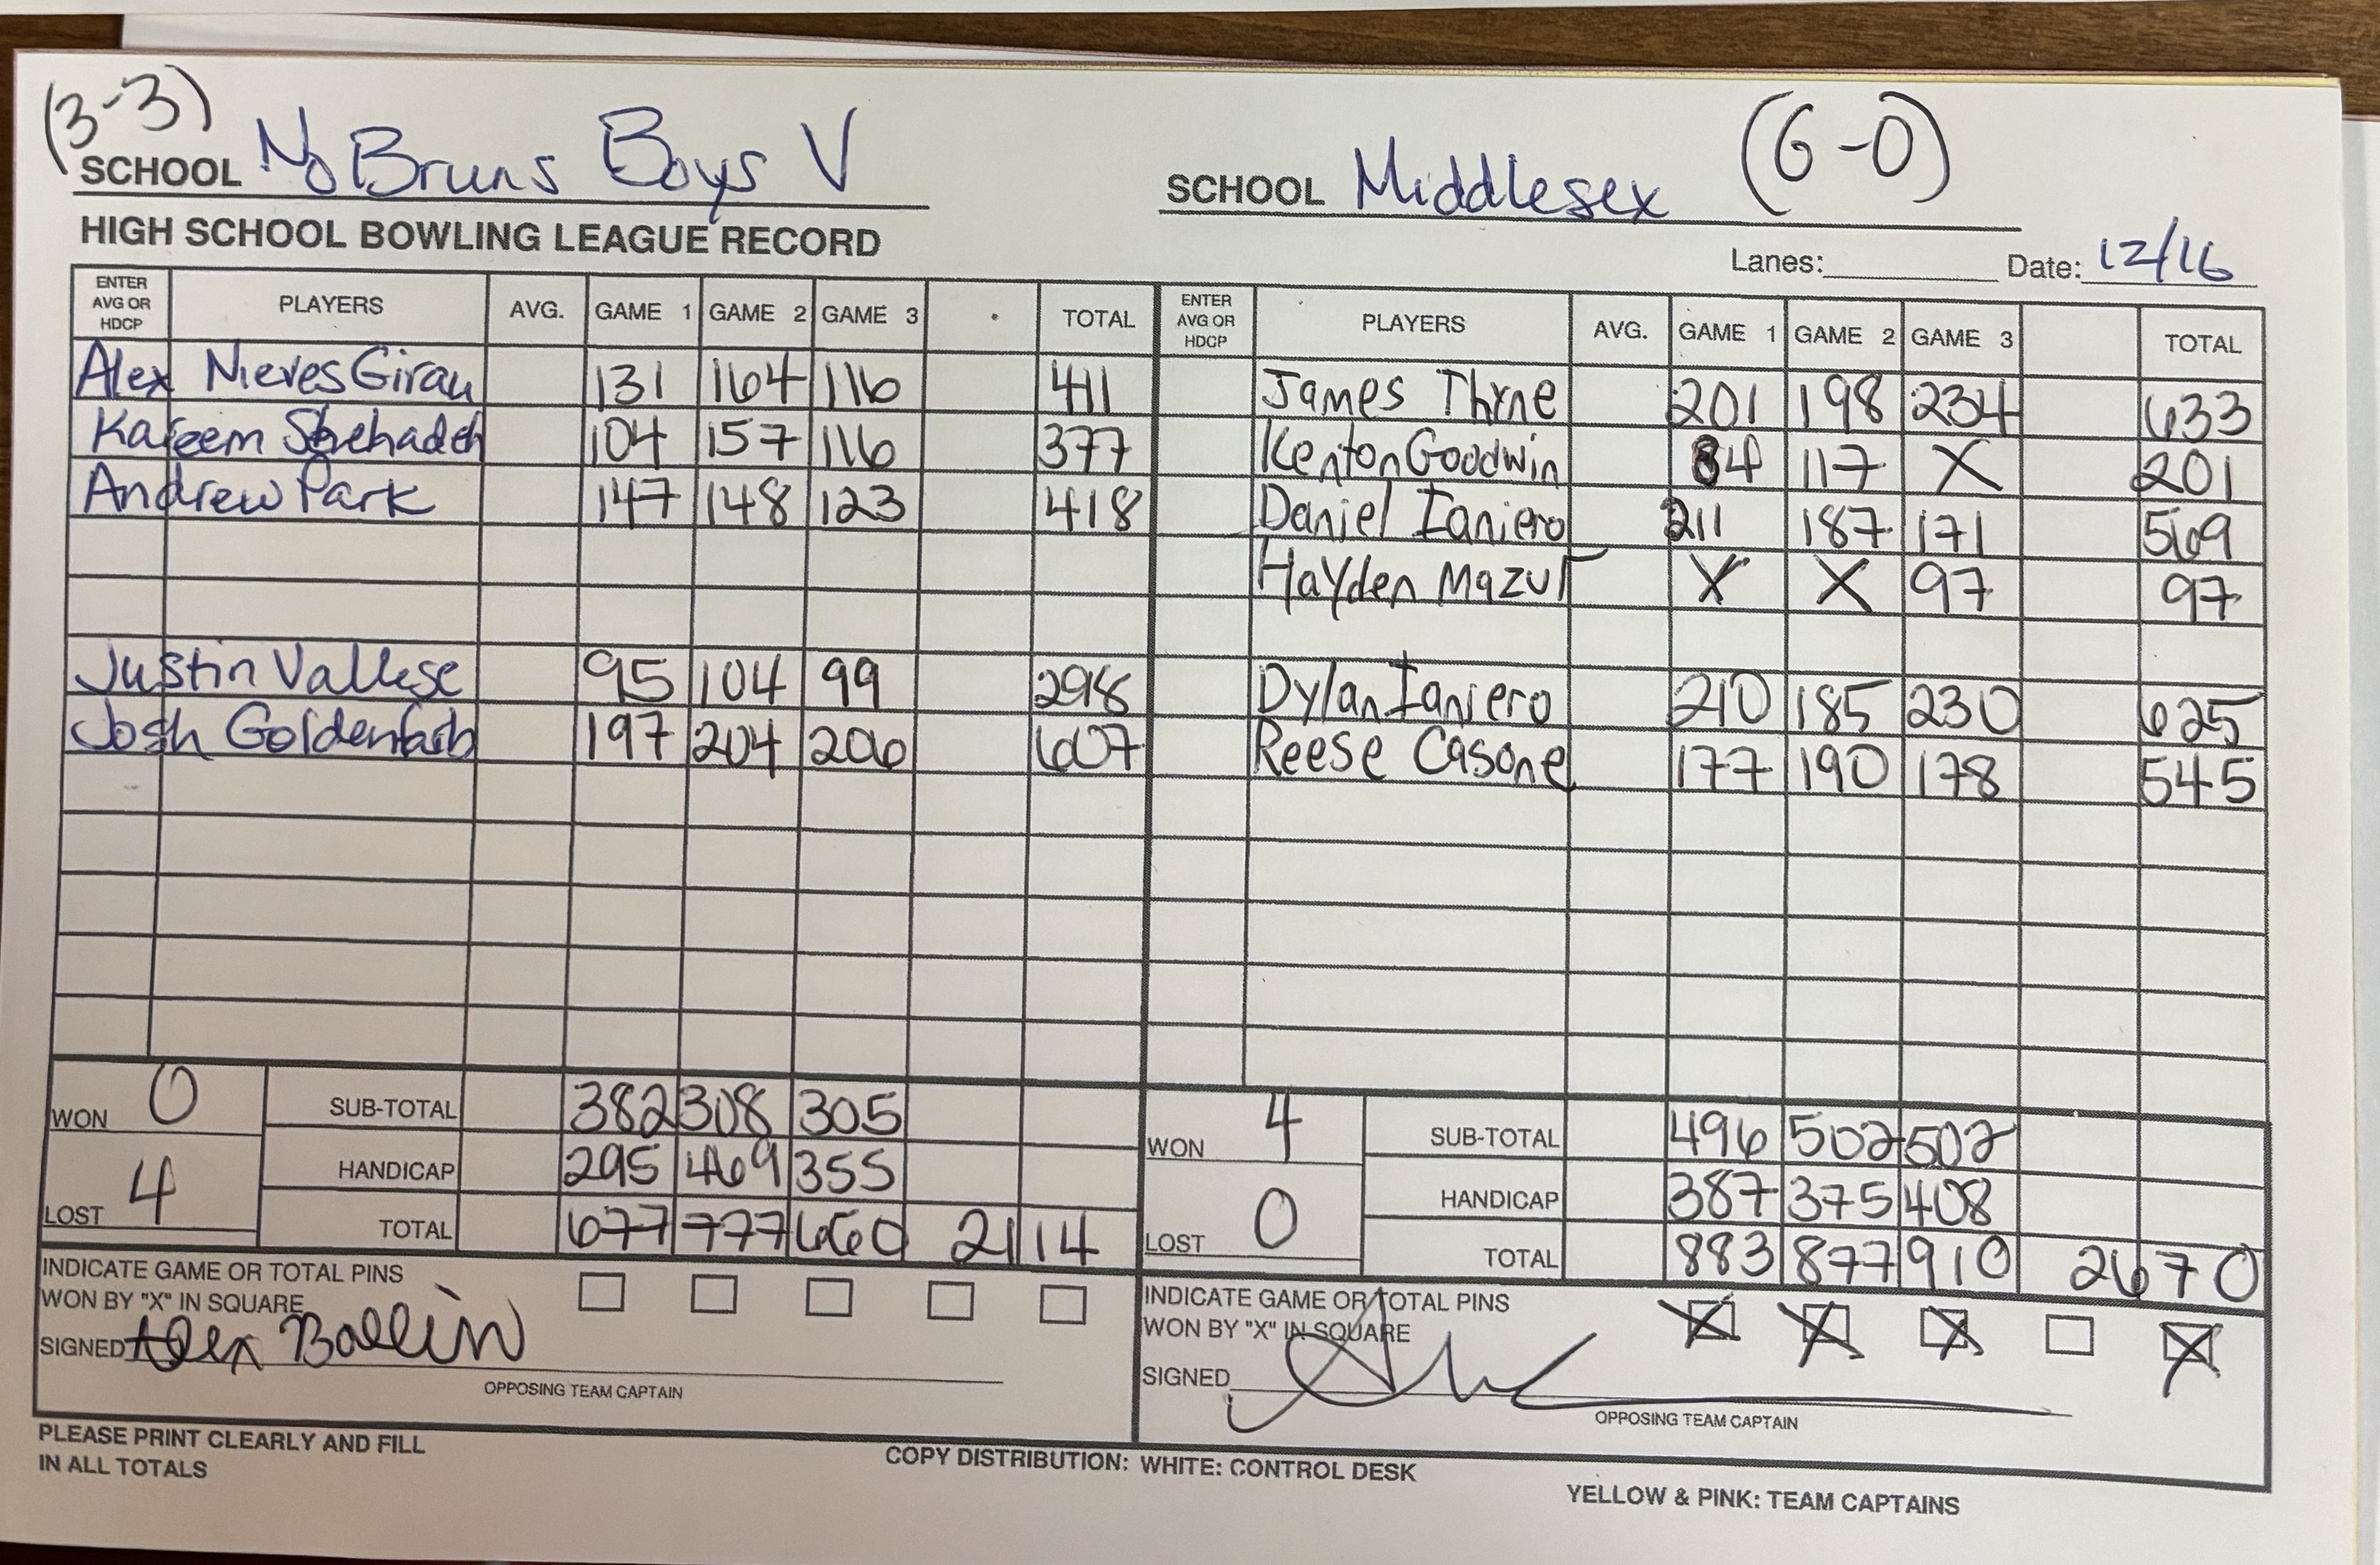 (3-3)
SCHOOL No Bruns Boys V
SCHOOL Middlesex (6-0)
HIGH SCHOOL BOWLING LEAGUE RECORD
Lanes: Date: 12/16
ENTER AVG OR HDCP PLAYERS AVG. GAME 1 GAME 2 GAME 3 TOTAL
Alex Nieves Girau 131 164 116 411
Kareem Shehadeh 104 157 116 377
Andrew Park 147 148 123 418
Justin Vallese 95 104 99 298
Josh Goldenfarb 197 204 206 607
WON 0
LOST 4
SUB-TOTAL 382 308 305
HANDICAP 295 469 355
TOTAL 677 777 660 2114
INDICATE GAME OR TOTAL PINS
WON BY "X" IN SQUARE
SIGNED Alex Ballin
OPPOSING TEAM CAPTAIN
ENTER AVG OR HDCP PLAYERS AVG. GAME 1 GAME 2 GAME 3 TOTAL
James Thyne 201 198 234 633
Kenton Goodwin 84 117 X 201
Daniel Ianiero 211 187 171 569
Hayden Mazur X X 97 97
Dylan Ianiero 210 185 230 625
Reese Casone 177 190 178 545
WON 4
LOST 0
SUB-TOTAL 496 502 502
HANDICAP 387 375 408
TOTAL 883 877 910 2670
INDICATE GAME OR TOTAL PINS
WON BY "X" IN SQUARE X X X X
SIGNED
OPPOSING TEAM CAPTAIN
PLEASE PRINT CLEARLY AND FILL
IN ALL TOTALS
COPY DISTRIBUTION: WHITE: CONTROL DESK
YELLOW & PINK: TEAM CAPTAINS